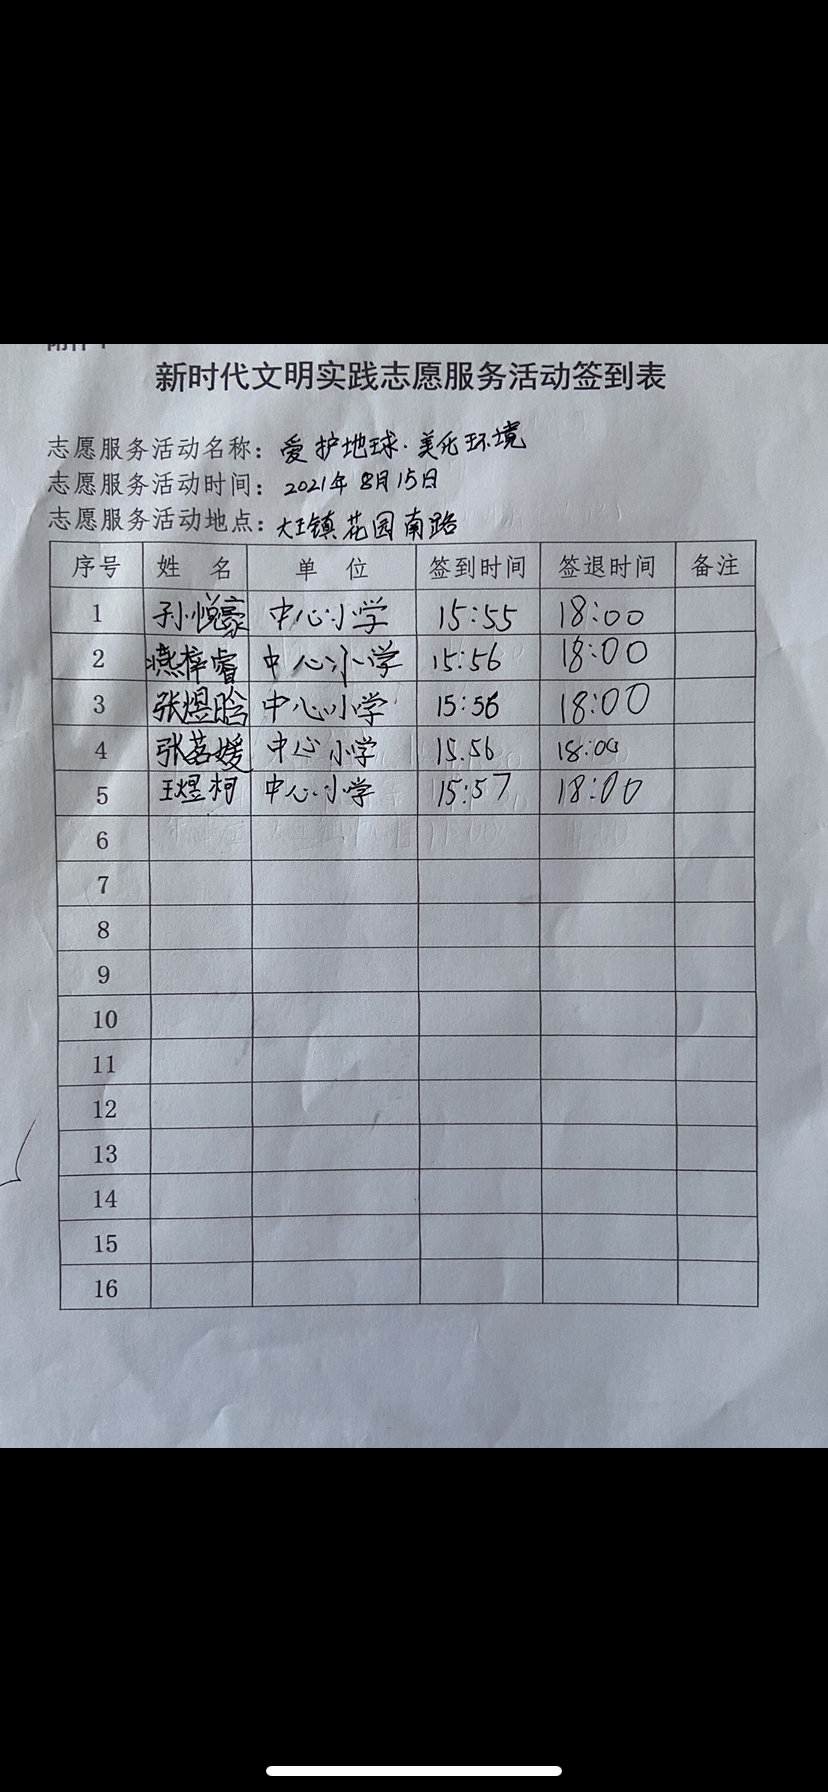 新时代文明实践志愿服务活动签到表
志愿服务活动名称：爱护地球·美化环境
志愿服务活动时间：2021年8月15日
志愿服务活动地点：大王镇花园南路
序号 姓名 单位 签到时间 签退时间 备注
1 孙悦豪 中心小学 15:55 18:00
2 燕梓睿 中心小学 15:56 18:00
3 张煜晗 中心小学 15:56 18:00
4 张茗媛 中心小学 15.56 18:00
5 王煜柯 中心小学 15:57 18:00
6
7
8
9
10
11
12
13
14
15
16